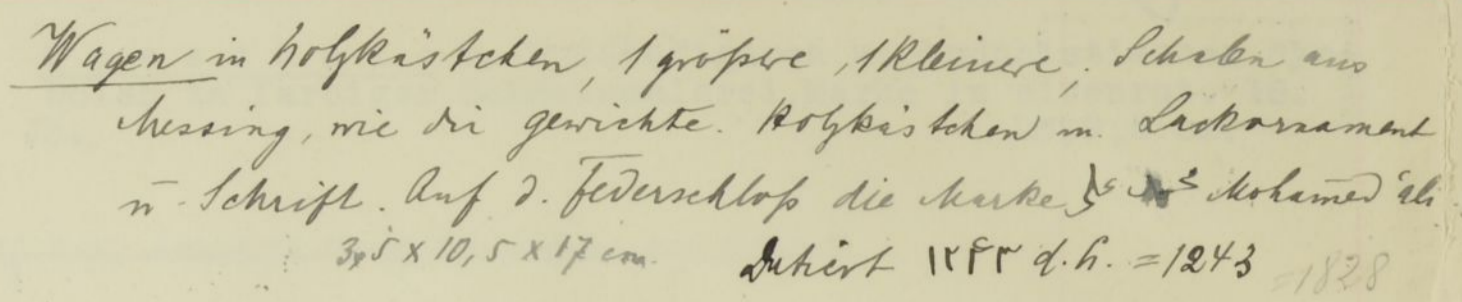 Wagen in Holzkästchen, 1 größere, 1 kleinere, Schalen aus
Messing, wie die gewichte. Holzkästchen m. Lackornament
u. Schrift. Auf d. Federschloß die Marke Mohamed ʿali
3,5 x 10,5 x 17 cm. Datiert ۱۲۴۳ d.h. = 1243 = 1828